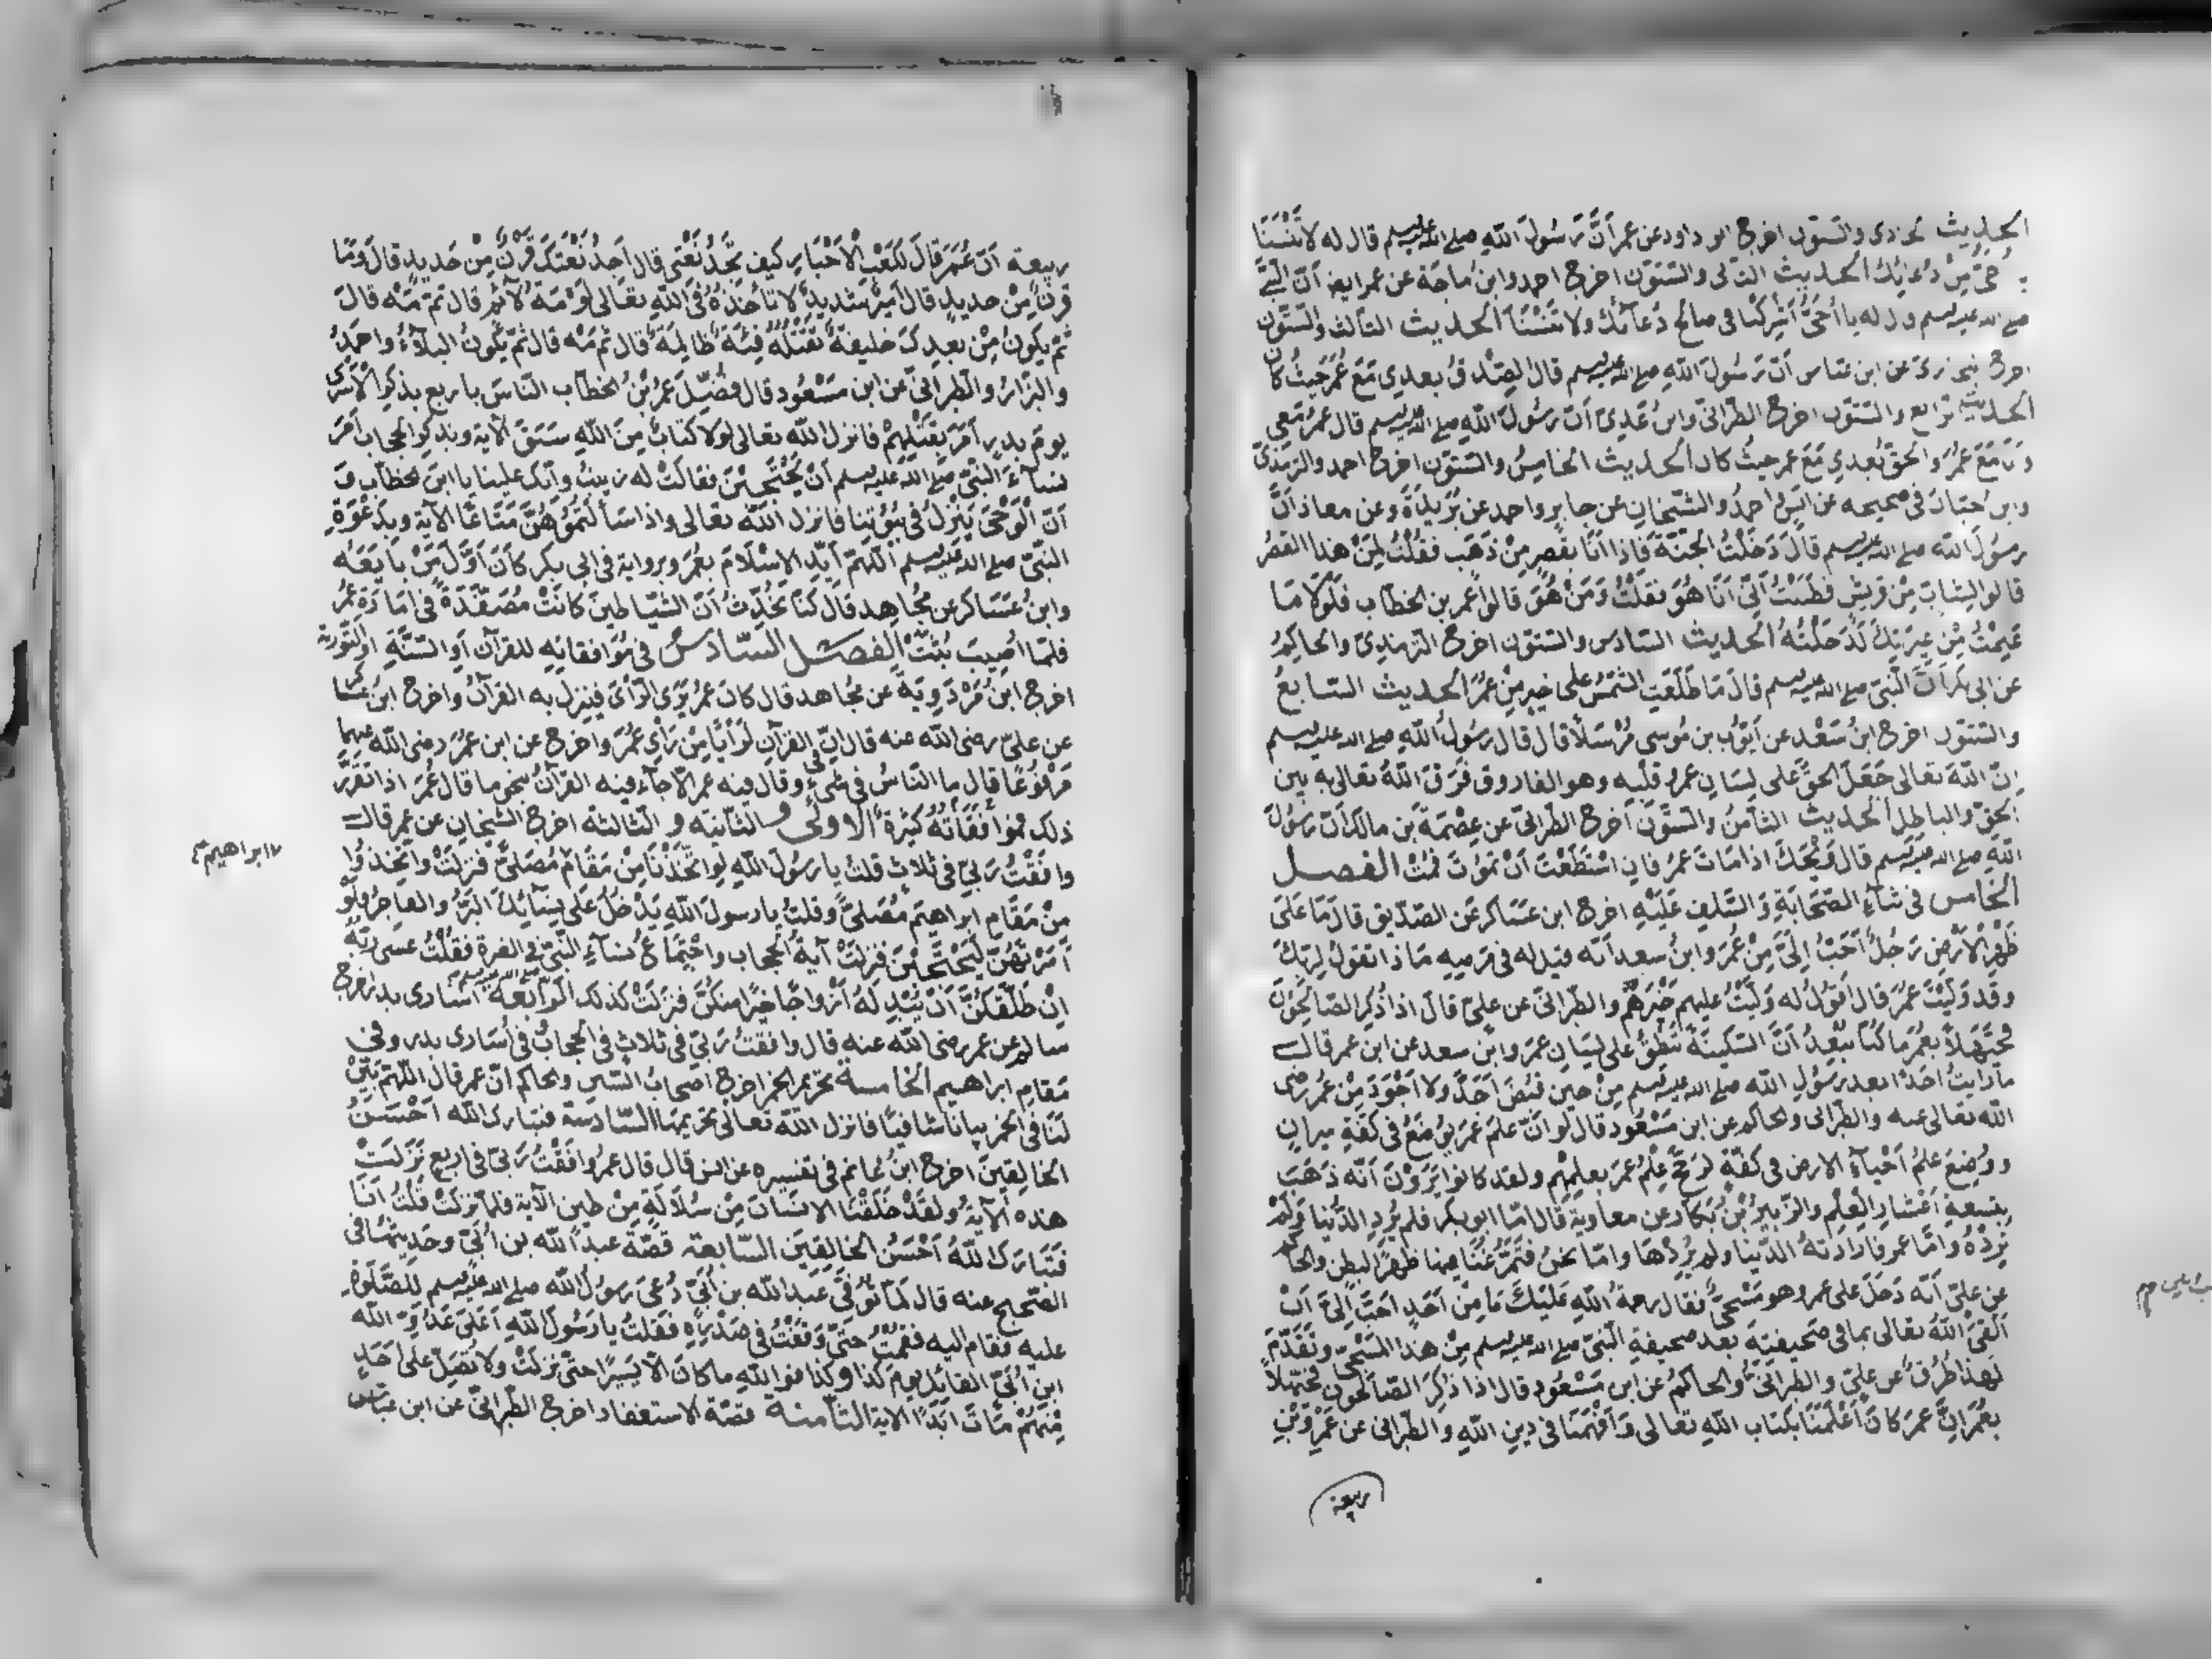 الحديث الحادى والستون اخرج ابو داود عن عمر أنّ رسول الله صلى الله عليه وسلم قال له لا تنسنا
يا أخىّ من دعائك الحديث الثانى والستون اخرج احمد وابن ماجة عن عمر ايضا أنّ النبىّ
صلى الله عليه وسلم قال له يا أُخىّ أشركنا فى صالح دعائك ولا تنسنا الحديث الثالث والستون
اخرج البخارى عن ابن عباس أنّ رسول الله صلى الله عليه وسلم قال الصدق بعدى مع عمر حيث كان
الحديث الرابع والستون اخرج الطبرانى وابن عدى أنّ رسول الله صلى الله عليه وسلم قال عمر معى
وانا مع عمر والحق بعدى مع عمر حيث كان الحديث الخامس والستون اخرج احمد والترمذى
وابن حبان فى صحيحه عن انس احمد والشيخان عن جابر واحمد عن بريدة وعن معاذ أنّ
رسول الله صلى الله عليه وسلم قال دخلت الجنة فاذا أنا بقصر من ذهب فقلت لمن هذا القصر
قالوا لشاب من قريش فظننت أنّى أنا هو فقلت ومن هو قالوا عمر بن الخطاب فلولا ما
علمت من غيرتك لدخلته الحديث السادس والستون اخرج الترمذى والحاكم
عن ابى بكر أنّ النبى صلى الله عليه وسلم قال ما طلعت الشمس على خير من عمر الحديث السابع
والستون اخرج ابن سعد عن أيوب بن موسى مرسلا قال قال رسول الله صلى الله عليه وسلم
إن الله تعالى جعل الحق على لسان عمر وقلبه وهو الفاروق فرق الله تعالى به بين
الحق والباطل الحديث الثامن والستون أخرج الطبرانى عن عصمة بن مالك أن رسول
الله صلى الله عليه وسلم قال ويحك اذا مات عمر فان استطعت أن تموت فمت الفصل
الخامس فى ثناء الصحابة والسلف عليه اخرج ابن عساكر عن الصديق قال ما على
ظهر الأرض رجل أحب إلىّ من عمر وابن سعد أنه قيل له فى مرضه ماذا تقول لربك
وقد وليت عمر قال أقول له وليت عليهم خيرهم والطبرانى عن علىّ قال اذا ذكر الصالحون
فحيهلا بعمر ما كنا نبعد أن السكينة تنطق على لسان عمر وابن سعد عن ابن عمر قال
ما رأيت احدا بعد رسول الله صلى الله عليه وسلم من حين قبض أحد ولا أجود من عمر رضى
الله تعالى عنه والطبرانى والحاكم عن ابن مسعود قال لو أنّ علم عمر يوضع فى كفة ميزان
ووضع علم أحياء الارض فى كفة لرجح علم عمر بعلمهم ولقد كانوا يرون أنه ذهب
بتسعة أعشار العلم والزبير بن بكار عن معاوية قال امّا ابو بكر فلم يرد الدنيا ولم
ترده وأما عمر فارادته الدنيا ولم يردها وامّا نحن فتمرغنا فيها ظهرا لبطن والحاكم
عن علىّ أنه دخل على عمر وهو مسجى فقال رحمة الله عليك ما من أحد احب إلىّ أن
ألقى الله تعالى بما فى صحيفته بعد صحيفة النبى صلى الله عليه وسلم من هذا المسجى وتقدم
لهذا طرق عن علىّ والطبرانى والحاكم عن ابن مسعود قال اذا ذكر الصالحون فحيهلا
بعمر إنّ عمر كان أعلمنا بكتاب الله تعالى وأفهمنا فى دين الله والطبرانى عن عمرو بن
ربيعة
ربيعة أنّ عمر قال لكعب الأحبار كيف تجد نعتى قال أجد نعتك قرن من حديد قال وما
قرن من حديد قال أمير شديد لا تأخذه فى الله تعالى لومة لائم قال ثم مه قال
ثم يكون من بعدك خليفة تقتله فئة ظالمة قال ثم مه قال ثم يكون البلاء واحمد
والبزار والطبرانى عن ابن مسعود قال فضّل عمر بن الخطاب الناس باربع بذكر الأسرى
يوم بدر أمر بقتلهم فانزل الله تعالى لولا كتاب من الله سبق الآية وبذكر الحجاب أمر
نساء النبى صلى الله عليه وسلم أن يحتجبن فقالت له زينب وأنك علينا يا ابن الخطاب و
أنّ الوحى ينزل فى بيوتنا فانزل الله تعالى واذا سألتموهن متاعا الآية وبدعوة
النبى صلى الله عليه وسلم اللهم أيّد الاسلام بعمر وبرواية فى ابى بكر كان أول من بايعه
وابن عساكر عن مجاهد قال كنا نحدّث أن الشياطين كانت مصفّدة فى امارة عمر
فلما أصيب بثت الفصل السادس فى موافقاته للقرآن أو السنة او التورية
اخرج ابن مردوية عن مجاهد قال كان عمر يرى الرأى فينزل به القرآن واخرج ابن عساكر
عن علىّ رضى الله عنه قال إنّ فى القرآن لرأيا من رأى عمر واخرج عن ابن عمر رضى الله عنهما
مرفوعا قال ما الناس فى شىء وقال فيه عمر الا جاء فيه القرآن بنحو ما قال عمر اذا تقرر
ذلك فموافقاته كثيرة الاولى والثانية والثالثة اخرج الشيخان عن عمر قال
وافقت ربى فى ثلاث قلت يا رسول الله لو اتخذنا من مقام مصلّى فنزلت واتخذوا
من مقام ابراهيم مصلّى وقلت يا رسول الله يدخل على نسائك البر والفاجر فلو
أمرتهن ليحتجبن فنزلت آية الحجاب واجتماع نساء النبى فى الغيرة فقلت عسى ربه
إن طلقكن أن يبدله أزواجا خيرا منكن فنزلت كذلك الرابعة أسارى بدر اخرج
سالم عن عمر رضى الله عنه قال وافقت ربى فى ثلاث فى الحجاب فى أسارى بدر وفى
مقام ابراهيم الخامسة تحريم الخمر اخرج اصحاب السنن والحاكم انّ عمر قال اللهم بين
لنا فى الخمر بيانا شافيا فانزل الله تعالى تحريمها السادسة فتبارك الله أحسن
الخالقين اخرج ابن ابى حاتم فى تفسيره عن انس قال قال عمر وافقت ربى فى اربع نزلت
هذه الآية ولقد خلقنا الانسان من سلالة من طين الآية فلما نزلت قلت أنا
فتبارك الله أحسن الخالقين السابعة قصة عبد الله بن أبىّ وحديثها فى
الصحيح عنه قال لما توفى عبد الله بن أبىّ دعى رسول الله صلى الله عليه وسلم للصلوة
عليه فقام اليه فقمت حتى وقفت فى صدره فقلت يا رسول الله أعلى عدو الله
ابن أبىّ القائل يوم كذا وكذا فوالله ما كان الا يسيرا حتى نزلت ولا تصلّ على أحد
منهم مات أبدا الآية الثامنة قصة الاستغفار اخرج الطبرانى عن ابن عباس
ابراهيم